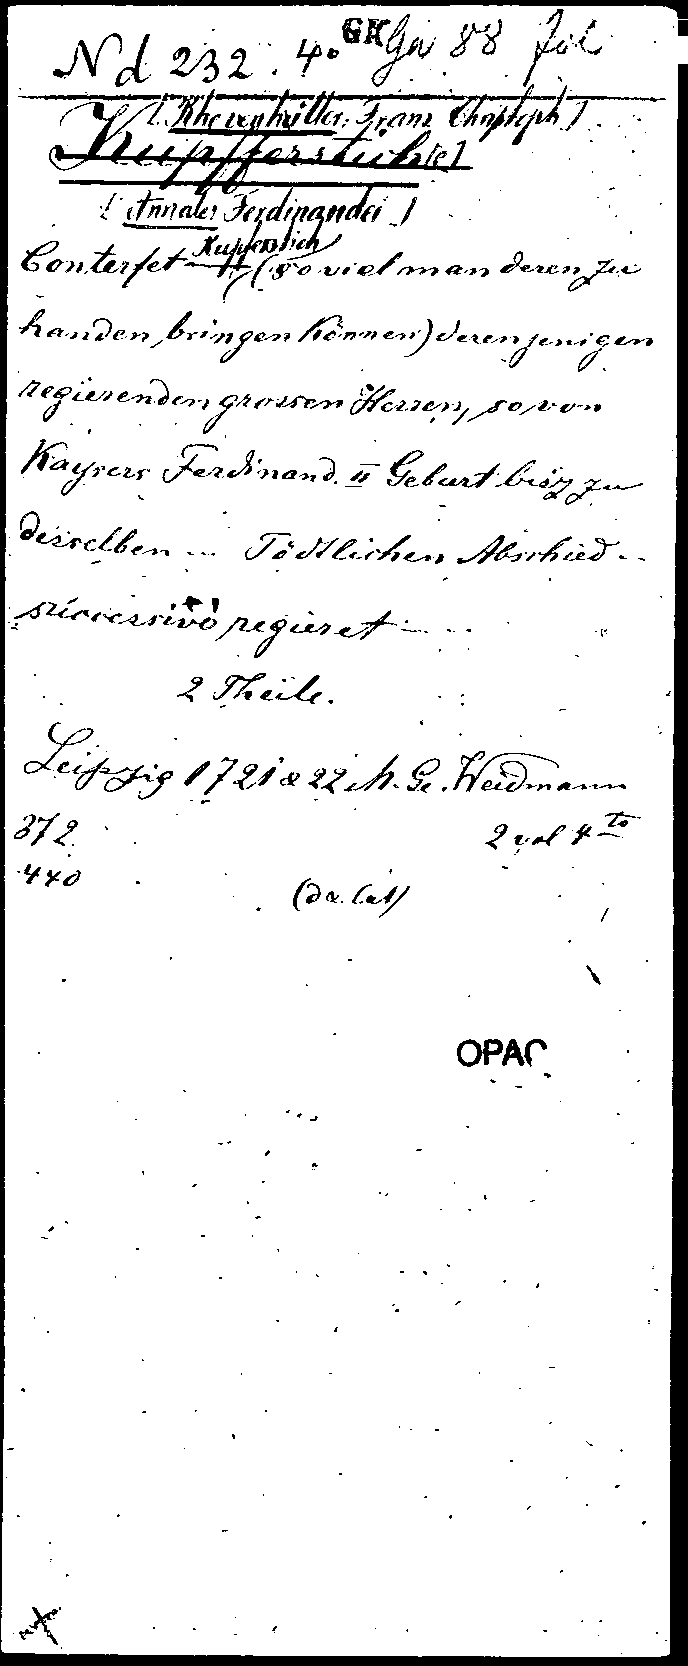 Nd 232. 4° GK Ga 88 fol
[Khevenhüller, Franz Christoph]
Kupfferstich[e]
[Annales Ferdinandei]
Conterfet Kupferstich (so viel man deren zu
handen bringen können) deren jenigen
regierenden grossen Herren, so von
Kaysers Ferdinand. II Geburt bisz zu
desselben ... Tödtlichen Abschied ...
successivè regieret ...
2 Theile.
Leipzig 1721 & 22 M. G. Weidmann
372 2 vol 4to
440
OPAC